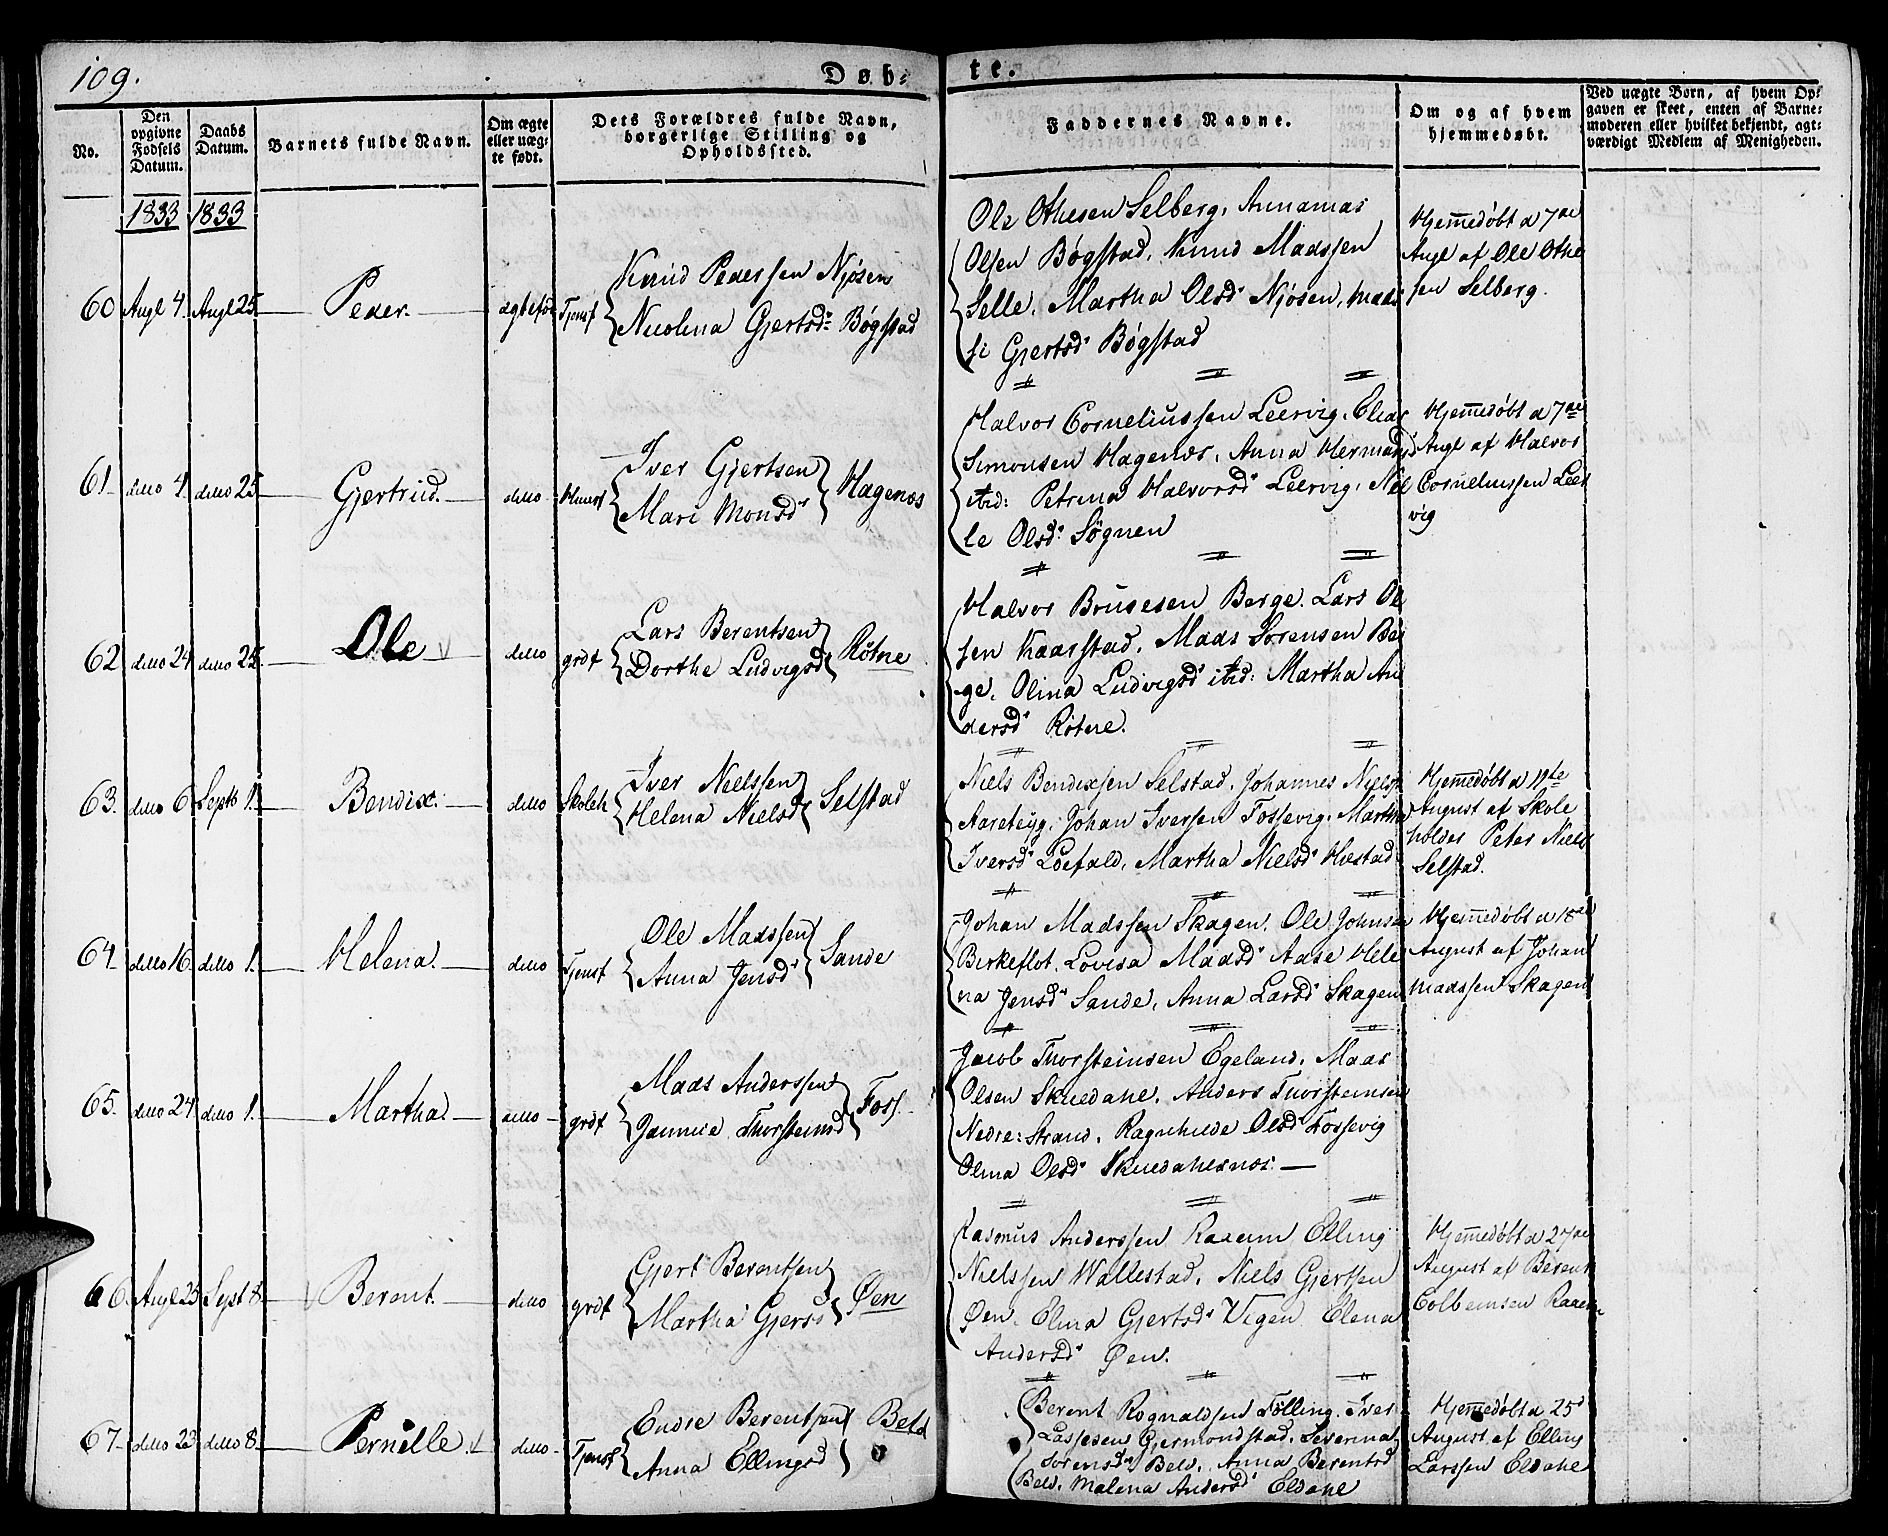 109.
Døb-
te.
No.
Den opgivne Fødsels Datum.
Daabs Datum.
Barnets fulde Navn.
Om ægte eller uægte født.
Dets Forældres fulde Navn, borgerlige Stilling og Opholdssted.
Faddernes Navne.
Om og af hvem hjemmedøbt.
Ved uægte Børn, af hvem Opgaven er skeet, enten af Barnemoderen eller hvilket bekjendt, agtværdigt Medlem af Menigheden.
1833 1833
60 Augt 4. Augt 25 Peder.
Knud Pederssen Njøsen
Nicolina Gjertsd: Bøgstad
Ole Othesen Selberg,
Olsen Bøgstad, Knud Madssen
Selle, Martha Olsd Njøsen, Mads
Gjertsd Bøgstad
Hjem̅edøbt d 7de
Augt af Ole Othe
sen Selberg.
61 ditto 4. ditto 25 Gjertrud. ditto
Iver Gjertsen
Mari Monsd
Hagenæs
Halvor Corneliussen Leervig, Elias
Simonsen Hagenæs, Anna Hermands
ibid: Petrina Halvorsd Leervig, Nil
le Olsd: Søgnen
Hjem̅edøbt d 7de
Augt af Halvor
Corneliussen Leer
vig
62 ditto 24 ditto 25 Ole ditto grdf
Lars Berentsen
Dorthe Ludvigsd
Rötne
Halvor Brusesen Berge. Lars Ol
sen Kaarstad, Mads Sörensen Ber
ge, Olina Ludvigsd ibid: Martha An
dersd Rötne.
63. ditto 6 Septb 1. Bendix. ditto Skoleh
Iver Nielssen
Helena Nielsd
Selstad
Niels Bendixsen Selstad, Johannes Niels
Johan Iversen Fossevig, Martha
Iversd Löefald, Martha Nielsd Hæstad
Hjem̅edøbt d 11te
August af Skole
holder Peter Niels
Selstad.
64. ditto 16. ditto 1. Helena. ditto
Ole Madssen
Anna Jensd
Sande
Johan Madssen Skagen, Ole Johnsen
Birkeflot, Lovisa Madsd Aase Hele
na Jensd Sande, Anna Larsd Skagen
Hjem̅edøbt d 18de
August af Johan
Madssen Skagen
65. ditto 24 ditto 1. Martha. ditto grdf
Mads Anderssen
Jannicie Thorsteinsd
Foss.
Jacob Thorsteinsen Egeland, Mads
Olsen Skuedahl, Anders Thorsteinsen
Nedre-Strand, Ragnhilde Olsd Fossevig
Olina Olsd Skuedahlsnæs.
66. Augt 25 Sept 8 Berent. ditto grdf
Gjert Berentsen
Martha Gjersd
Øen
Rasmus Anderssen Raaem Elling
Nielssen Wallestad, Niels Gjertsen
Øen, Elina Gjertsd Vigen Elena
Andersd Øen.
Hjem̅edøbt d 27de
August af Berent
Colbeinsen Raaem
67. ditto 23 ditto 8. Pernille. ditto
Endre Berentsen
Anna Ellingsd
Beld
Berent Rognaldsen Fölling, Iver
Lassesen Gjermondstad, Severina
Sörensd Beld, Anna Berentsd
Beld, Malena Andersd Eldahl
Hjem̅edøbt d 25d
August af Elling
Larssen Eldahl